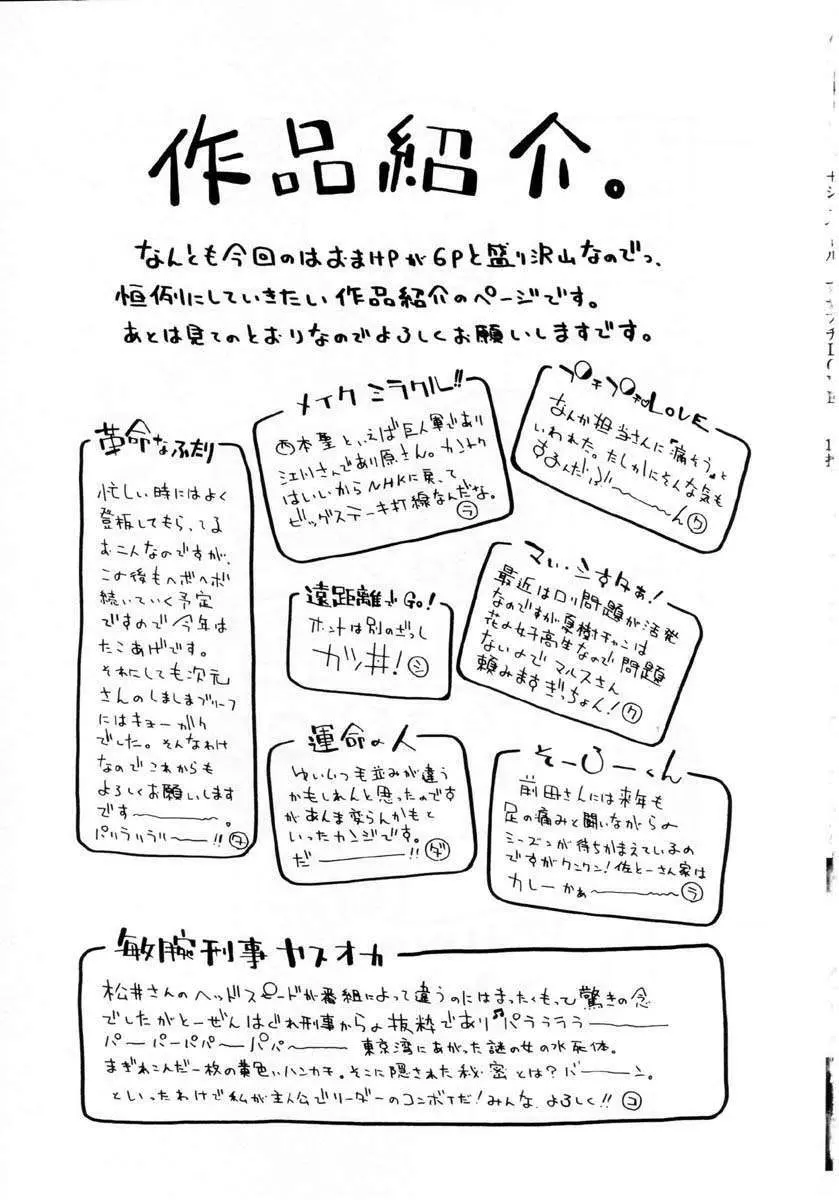 作品紹介。
なんとも今回のはおまけPが6Pと盛り沢山なのでっ、
恒例にしていきたい作品紹介のページです。
あとは見てのとおりなのでよろしくお願いしますです。
革命なふたり
忙しい時にはよく
登板してもらってる
おこんなのですが、
この後もヘボヘボ
続いていく予定
ですので今年は
たこあげです。
それにしても次元
さんのしましまブリーフ
にはキョーがく
でした。そんなわけ
なのでこれからも
よろしくお願いします
です――――。
パリラリラリ―――!! タ
メイクミラクル!!
西本聖といえば巨人軍であり
江川さんであり原さん。カントク
はいいからNHKに戻って
ビッグステーキ打線なんだな。
ラ
LOVE
なんか担当さんに「痛そう」と
いわれた。たしかにそんな気も
するんだぶ〜〜〜ん ク
遠距離でGO!
ホントは別のざっし
ガッ井! シ
まい・しすたぁ!
最近はロリ問題が活発
なのですが夏樹チャンは
花の女子高生なので問題
ないのでマルスさん
頼みますぎっちょん! ク
運命の人
ゆいいつ毛並みが違う
かもしれんと思ったのです
があんま変らんかもと
いったカンジです。
だ――――!! ダ
そーろーくん
前田さんには来年も
足の痛みと闘いながらの
シーズンが待ちかまえているの
ですがクンクン!佐とーさん家は
カレーかぁ〜〜〜〜 ラ
敏腕刑事ヤスオカ
松井さんのヘッドスピードが番組によって違うのにはまったくもって驚きの念
でしたがとーぜんはぐれ刑事からの抜粋であり♫パララララ――――
パーパーパパーパパー――― 東京湾にあがった謎の女の水死体。
まぎれこんだ一枚の黄色いハンカチ。そこに隠された秘密とは?バーーン。
といったわけで私が主人公でリーダーのコンボイだ!みんな、よろしく!! コ